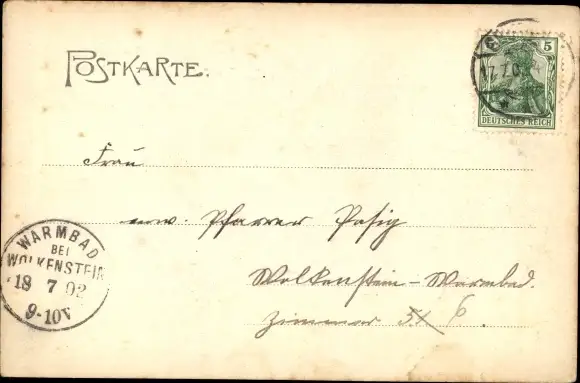 POSTKARTE.
5
17.7.0
DEUTSCHES REICH
Frau
verw. Pfarrer Posig
WARMBAD
BEI
WOLKENSTEIN
18 7 02
9-10V
Wolkenstein-Warmbad.
Zimmer 6.